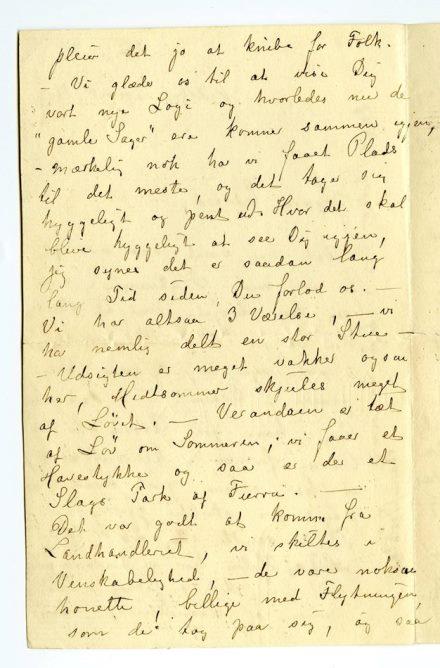 pleier det jo at knibe for Folk.
– Vi glæder os til at vise Dig
vort nye Logi og hvorledes nu de
"gamle Sager" ere komne sammen igjen,
– mærkelig nok ha vi faaet Plads
til det meste, og det tager sig
hyggeligt og pent ud. Hvor det skal
blive hyggeligt at see Dig igjen,
jeg synes det er saadan lang
lang Tid siden Du forlod os. –
Vi har altsaa 3 Værelse, – vi
ha nemlig delt en stor Stue –
– Udsigten er meget vakker ogsaa
her, Midtsommer skjules meget
af Løvet. – Verandaen er tæt
af Løv om Sommeren; vi faaer et
Havestykke og saa er der et
Slags Park af Furu. –
Det var godt at komme fra
Landhandleriet, vi skiltes i
Venskabelighed, – de vare noksaa
honette, billige med Flytningen
som de tog paa sig, og saa